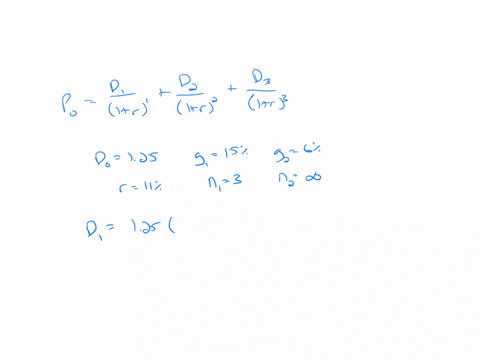 P₀ = D₁/(1+r)¹ + D₂/(1+r)² + D₃/(1+r)³
D₀ = 1.25 g₁ = 15% g₂ = 6%
r = 11% n₁ = 3 n₂ = ∞
D₁ = 1.25 (